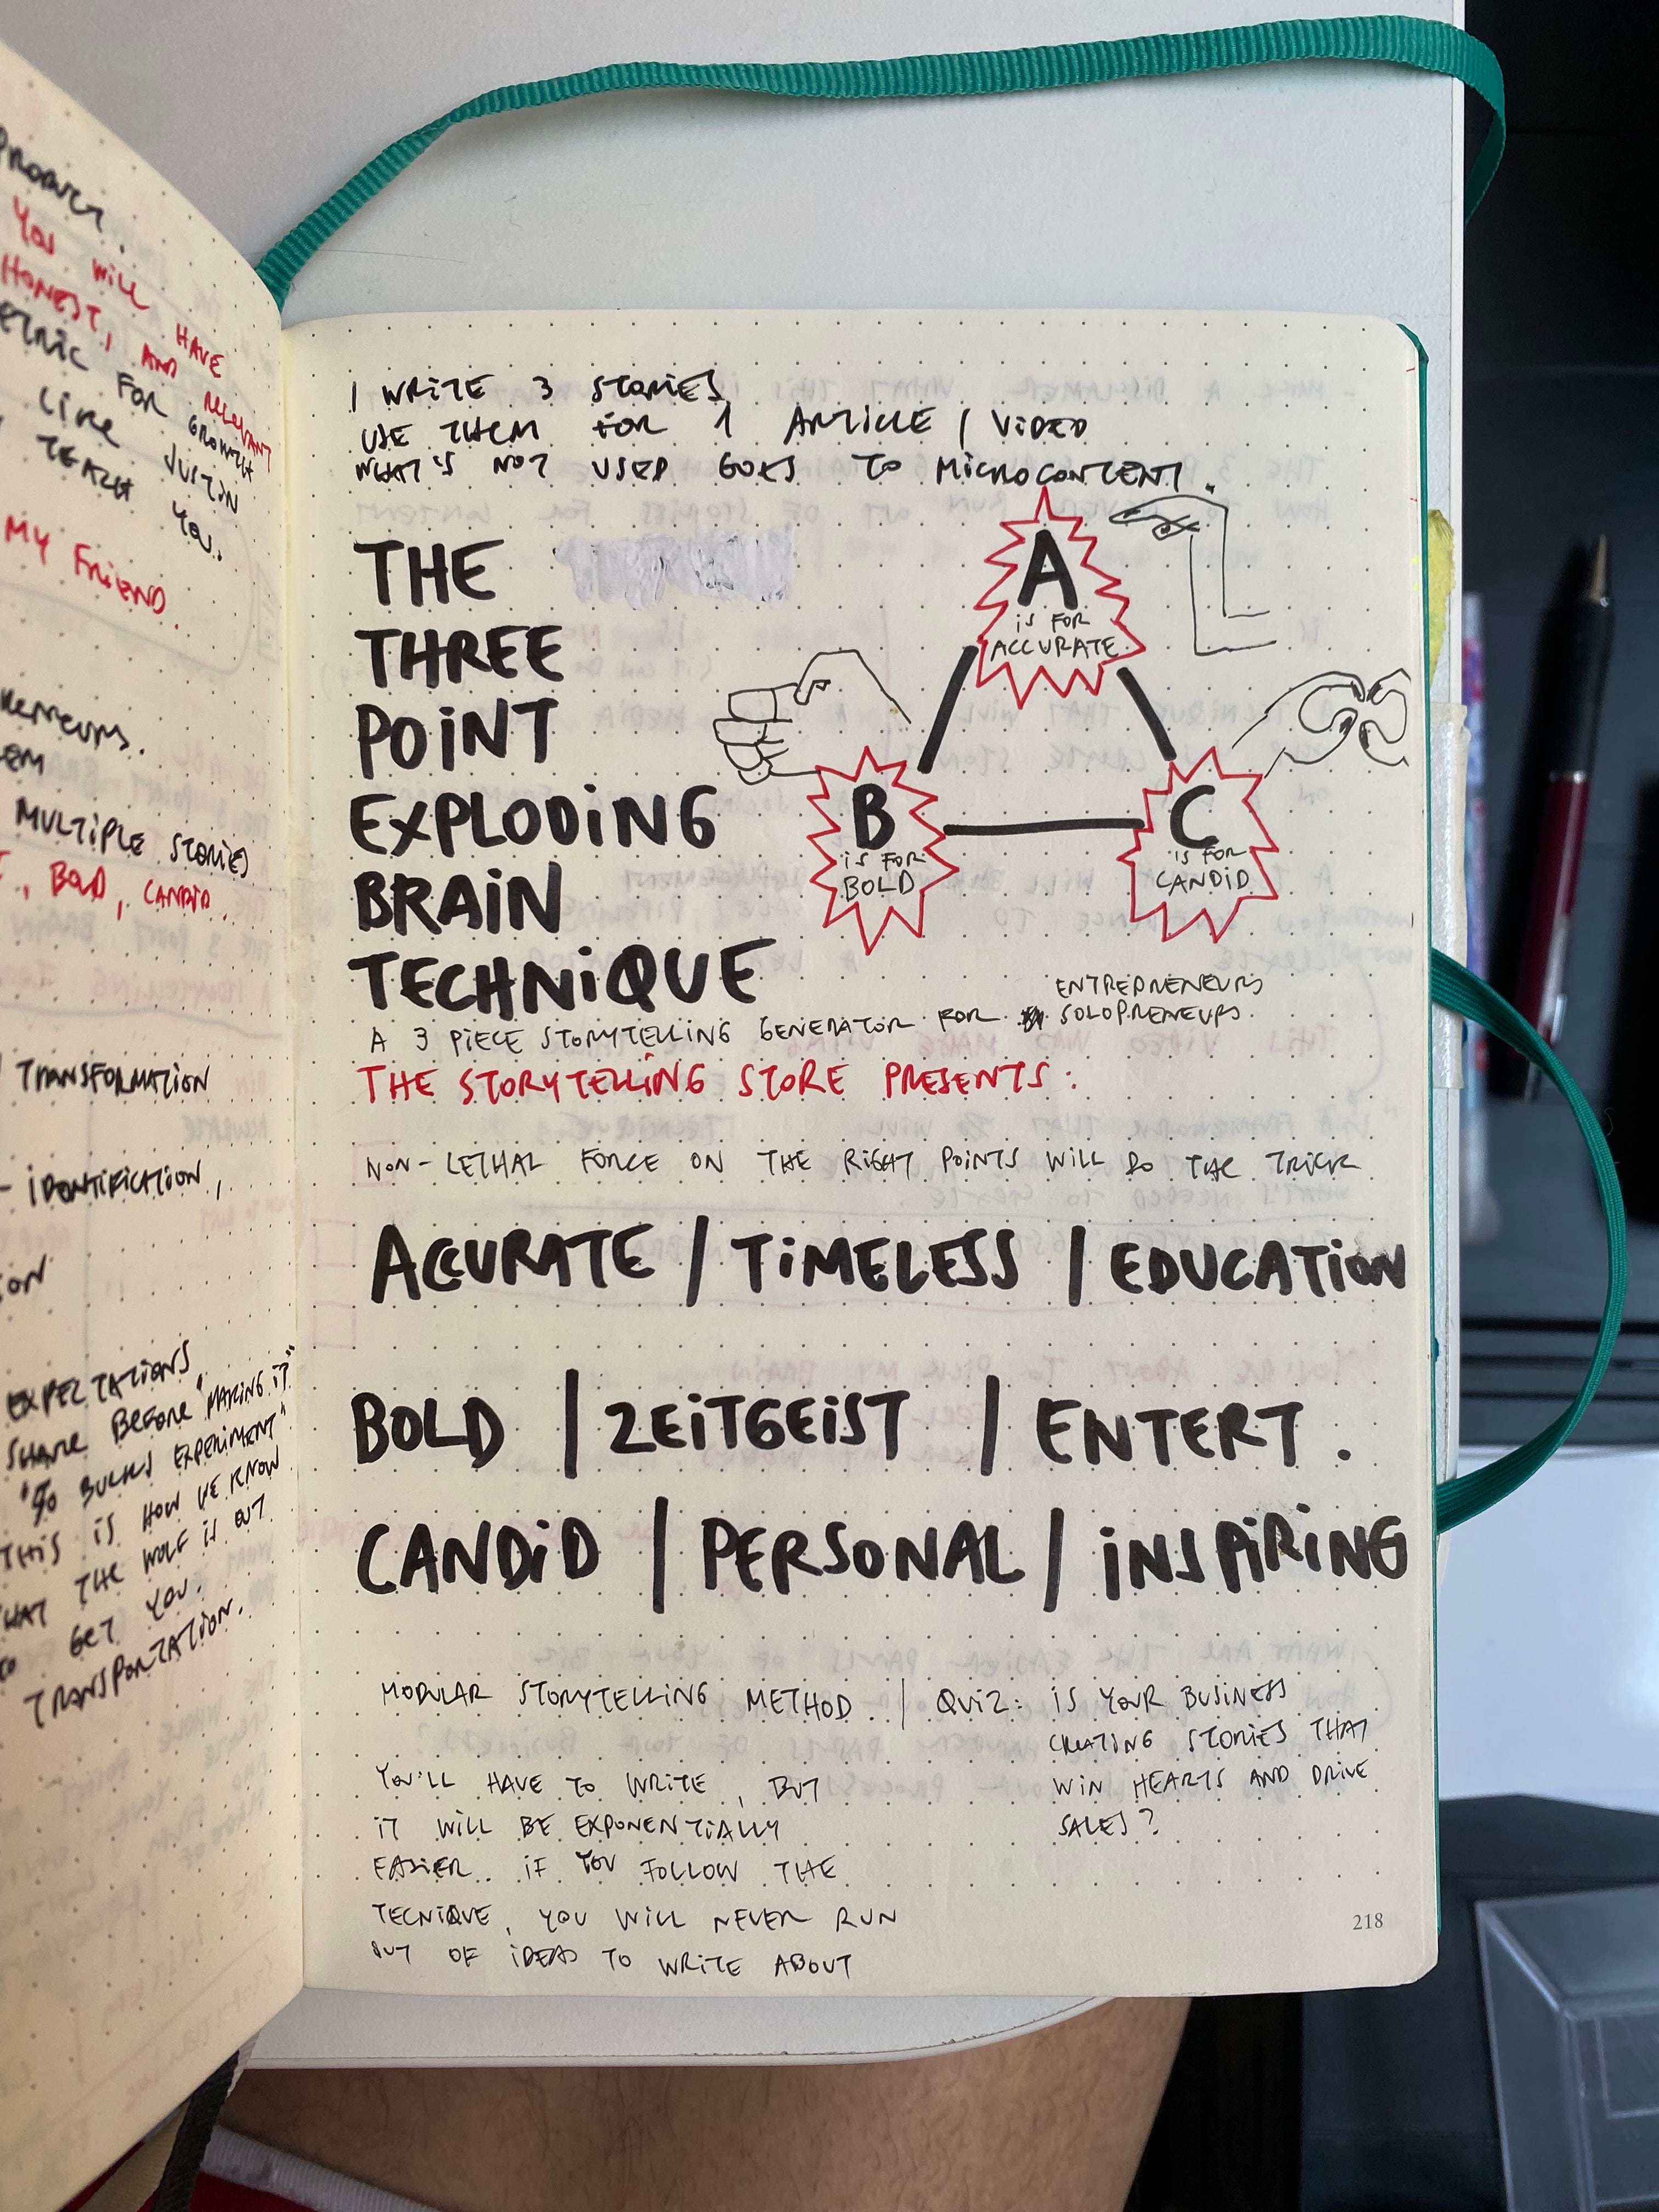 PRODUCT.
YOU WILL HAVE
HONEST, AND RELEVANT
FOR GROWTH
LIKE JUSTIN
TEACH YOU.
MY FRIEND.
MULTIPLE STORIES
, BOLD, CANDID.
TRANSFORMATION
- IDENTIFICATION,
EXPECTATIONS
SHARE BEFORE "MAKING IT"
BUCKS EXPERIMENT"
THIS IS HOW WE KNOW
THE WOLF IS OUT
TO GET YOU.
TRANSPORTATION.
I WRITE 3 STORIES
USE THEM FOR 1 ARTICLE / VIDEO
WHAT'S NOT USED GOES TO MICROCONTENT.
THE
THREE
POINT
EXPLODING
BRAIN
TECHNIQUE
A
IS FOR
ACCURATE
B
IS FOR
BOLD
C
IS FOR
CANDID
A 3 PIECE STORYTELLING GENERATOR FOR ENTREPRENEURS
SOLOPRENEURS.
THE STORYTELLING STORE PRESENTS:
NON-LETHAL FORCE ON THE RIGHT POINTS WILL DO THE TRICK
ACCURATE / TIMELESS / EDUCATION
BOLD / ZEITGEIST / ENTERT.
CANDID / PERSONAL / INSPIRING
MODULAR STORYTELLING METHOD. /
YOU'LL HAVE TO WRITE, BUT
IT WILL BE EXPONENTIALLY
EASIER.. IF YOU FOLLOW THE
TECNIQVE, YOU WILL NEVER RUN
OUT OF IDEAS TO WRITE ABOUT
QUIZ: IS YOUR BUSINESS
CREATING STORIES THAT
WIN HEARTS AND DRIVE
SALES?
218